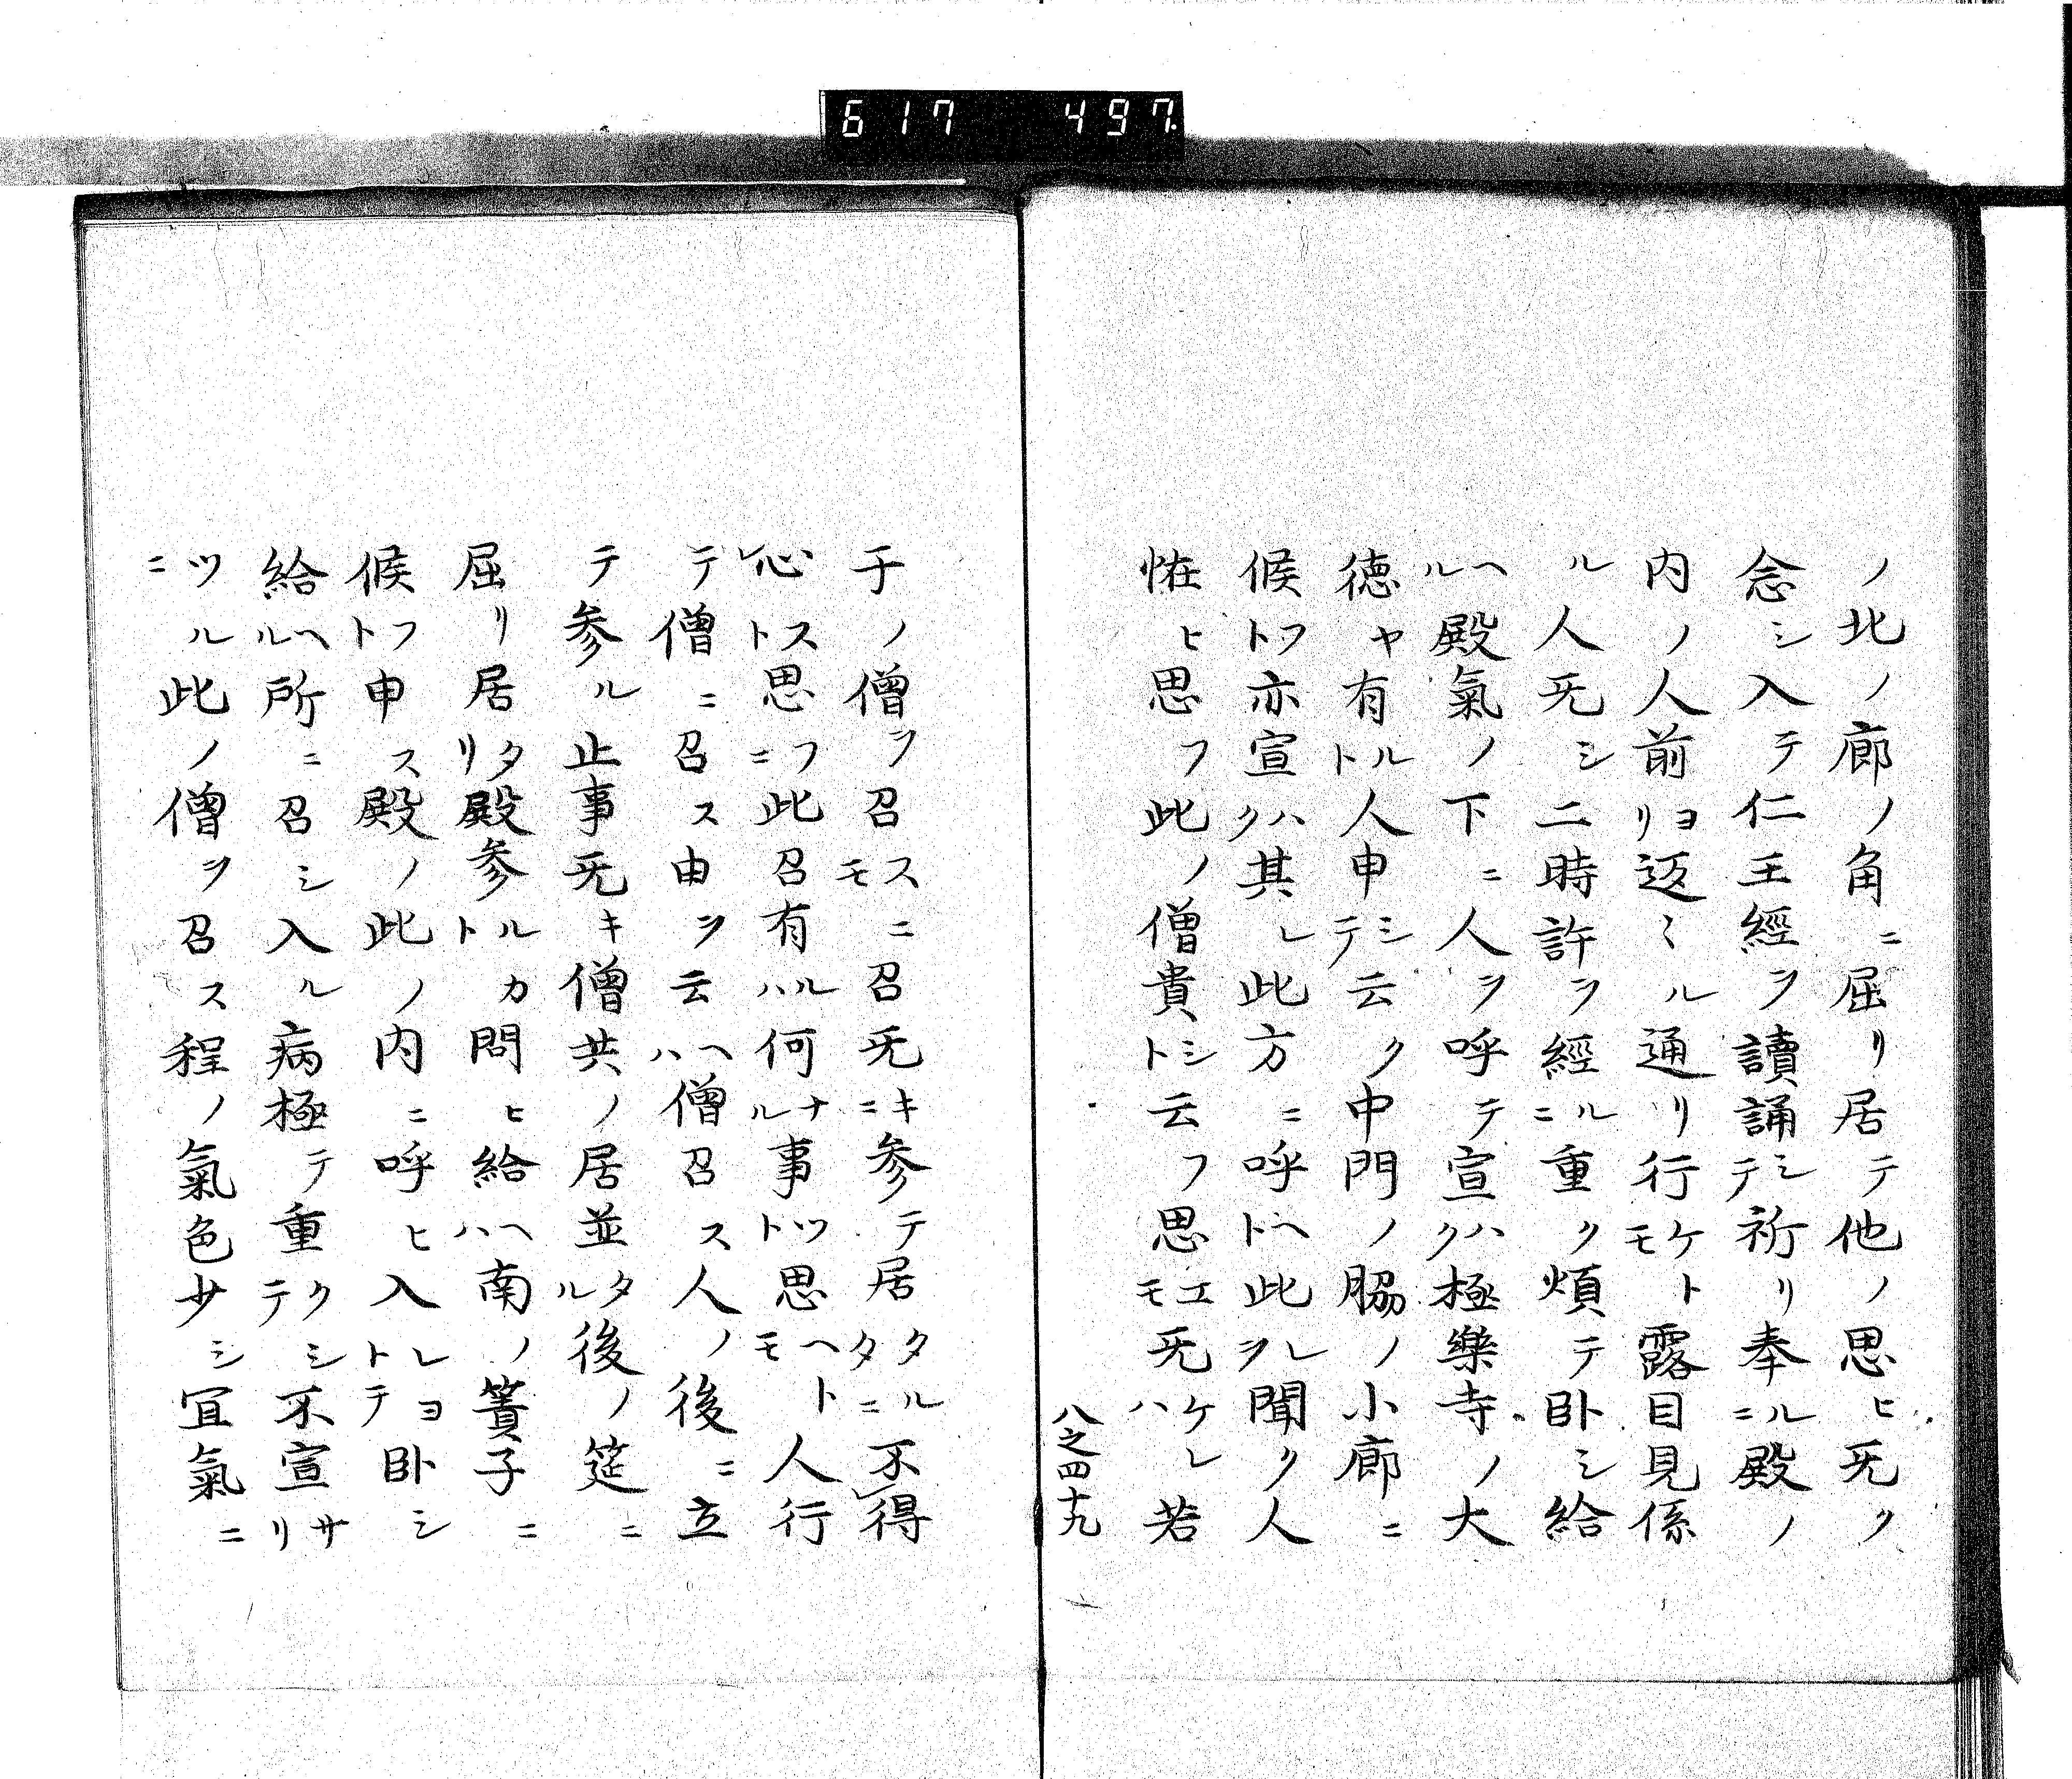 617 497.
ノ北ノ廊ノ角ニ屈リ居テ他ノ思ヒ旡ク
念シ入テ仁王經ヲ讀誦シテ祈リ奉ルニ殿ノ
内ノ人前ヨリ返〻ル通リ行ケトモ露目見係
ル人旡シ二時許ヲ經ルニ重ク煩テ卧シ給
ヘル殿氣ノ下ニ人ヲ呼テ宣ハク極樂寺ノ大
徳ヤ有ルト人申シテ云ク中門ノ脇ノ小廊ニ
候フト亦宣ハク其レ此方ニ呼ヘト此レヲ聞ク人
恠ヒ思フ此ノ僧貴シト云フ思エモ旡ケレハ若
八之四十九
于ノ僧ヲ召スニモ召旡キニ参テ居タルタニ不得
心レスト思フニ此召有ルハ何ナル事ツト思ヘトモ人行
テ僧ニ召ス由ヲ云ヘハ僧召ス人ノ後ニ立
テ参ル止事旡キ僧共ノ居並タル後ノ筵ニ
屈リ居タリ殿参ルトカ問ヒ給ヘハ南ノ簀子ニ
候フト申ス殿ノ此ノ内ニ呼ヒ入レヨトテ卧シ
給ヘル所ニ召シ入ル病極テ重クシテ不宣サリ
ツルニ此ノ僧ヲ召ス程ノ氣色少シ冝氣ニ